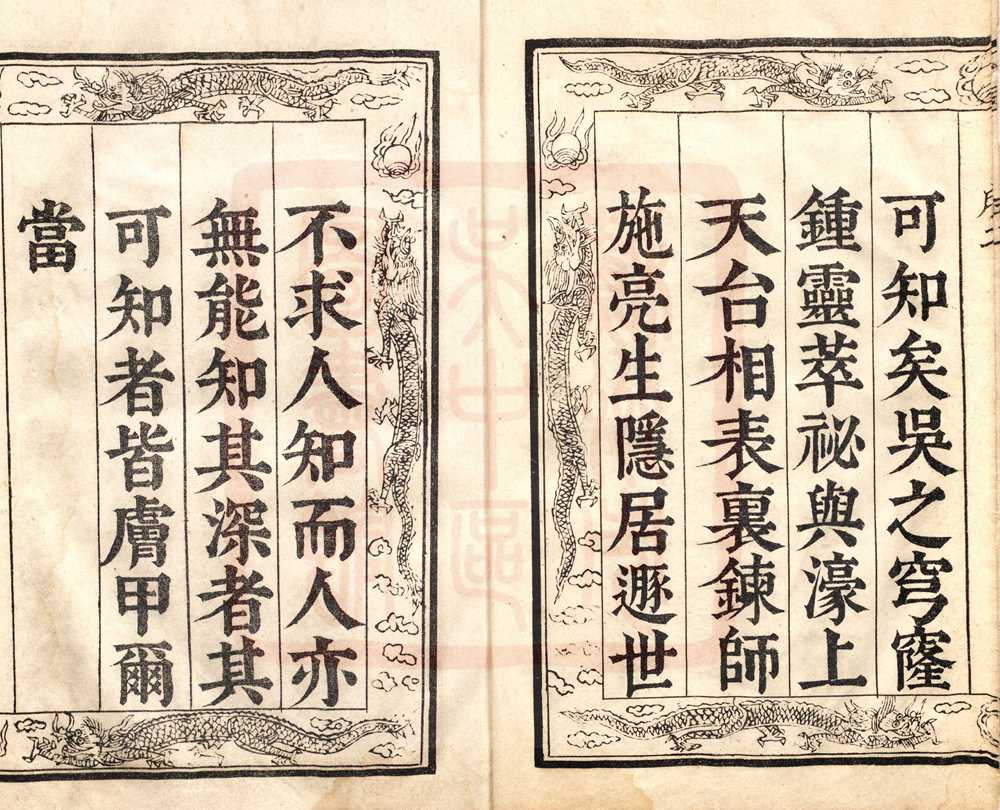 可知矣吳之穹窿
鍾靈萃祕與濠上
天台相表裏鍊師
施亮生隱居遯世
不求人知而人亦
無能知其深者其
可知者皆膚甲爾
當